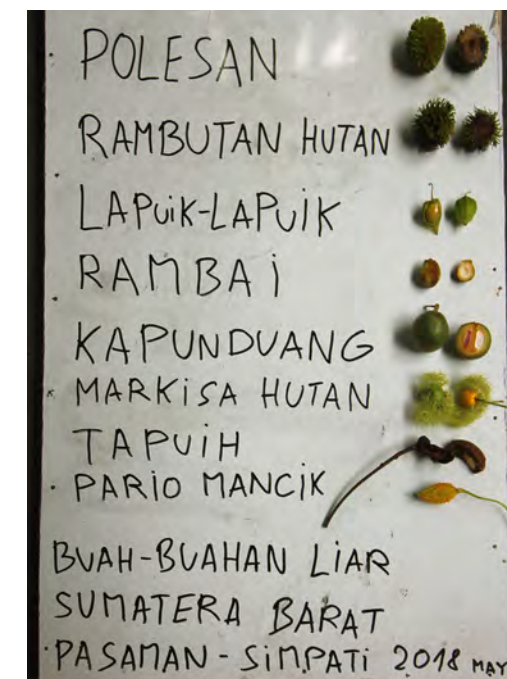 POLESAN
RAMBUTAN HUTAN
LAPUiK-LAPUiK
RAMBAi
KAPUNDUANG
MARKiSA HUTAN
TAPUiH
PARiO MANCiK
BUAH-BUAHAN LiAR
SUMATERA BARAT
PASAMAN - SiMPATi 2018 MAY